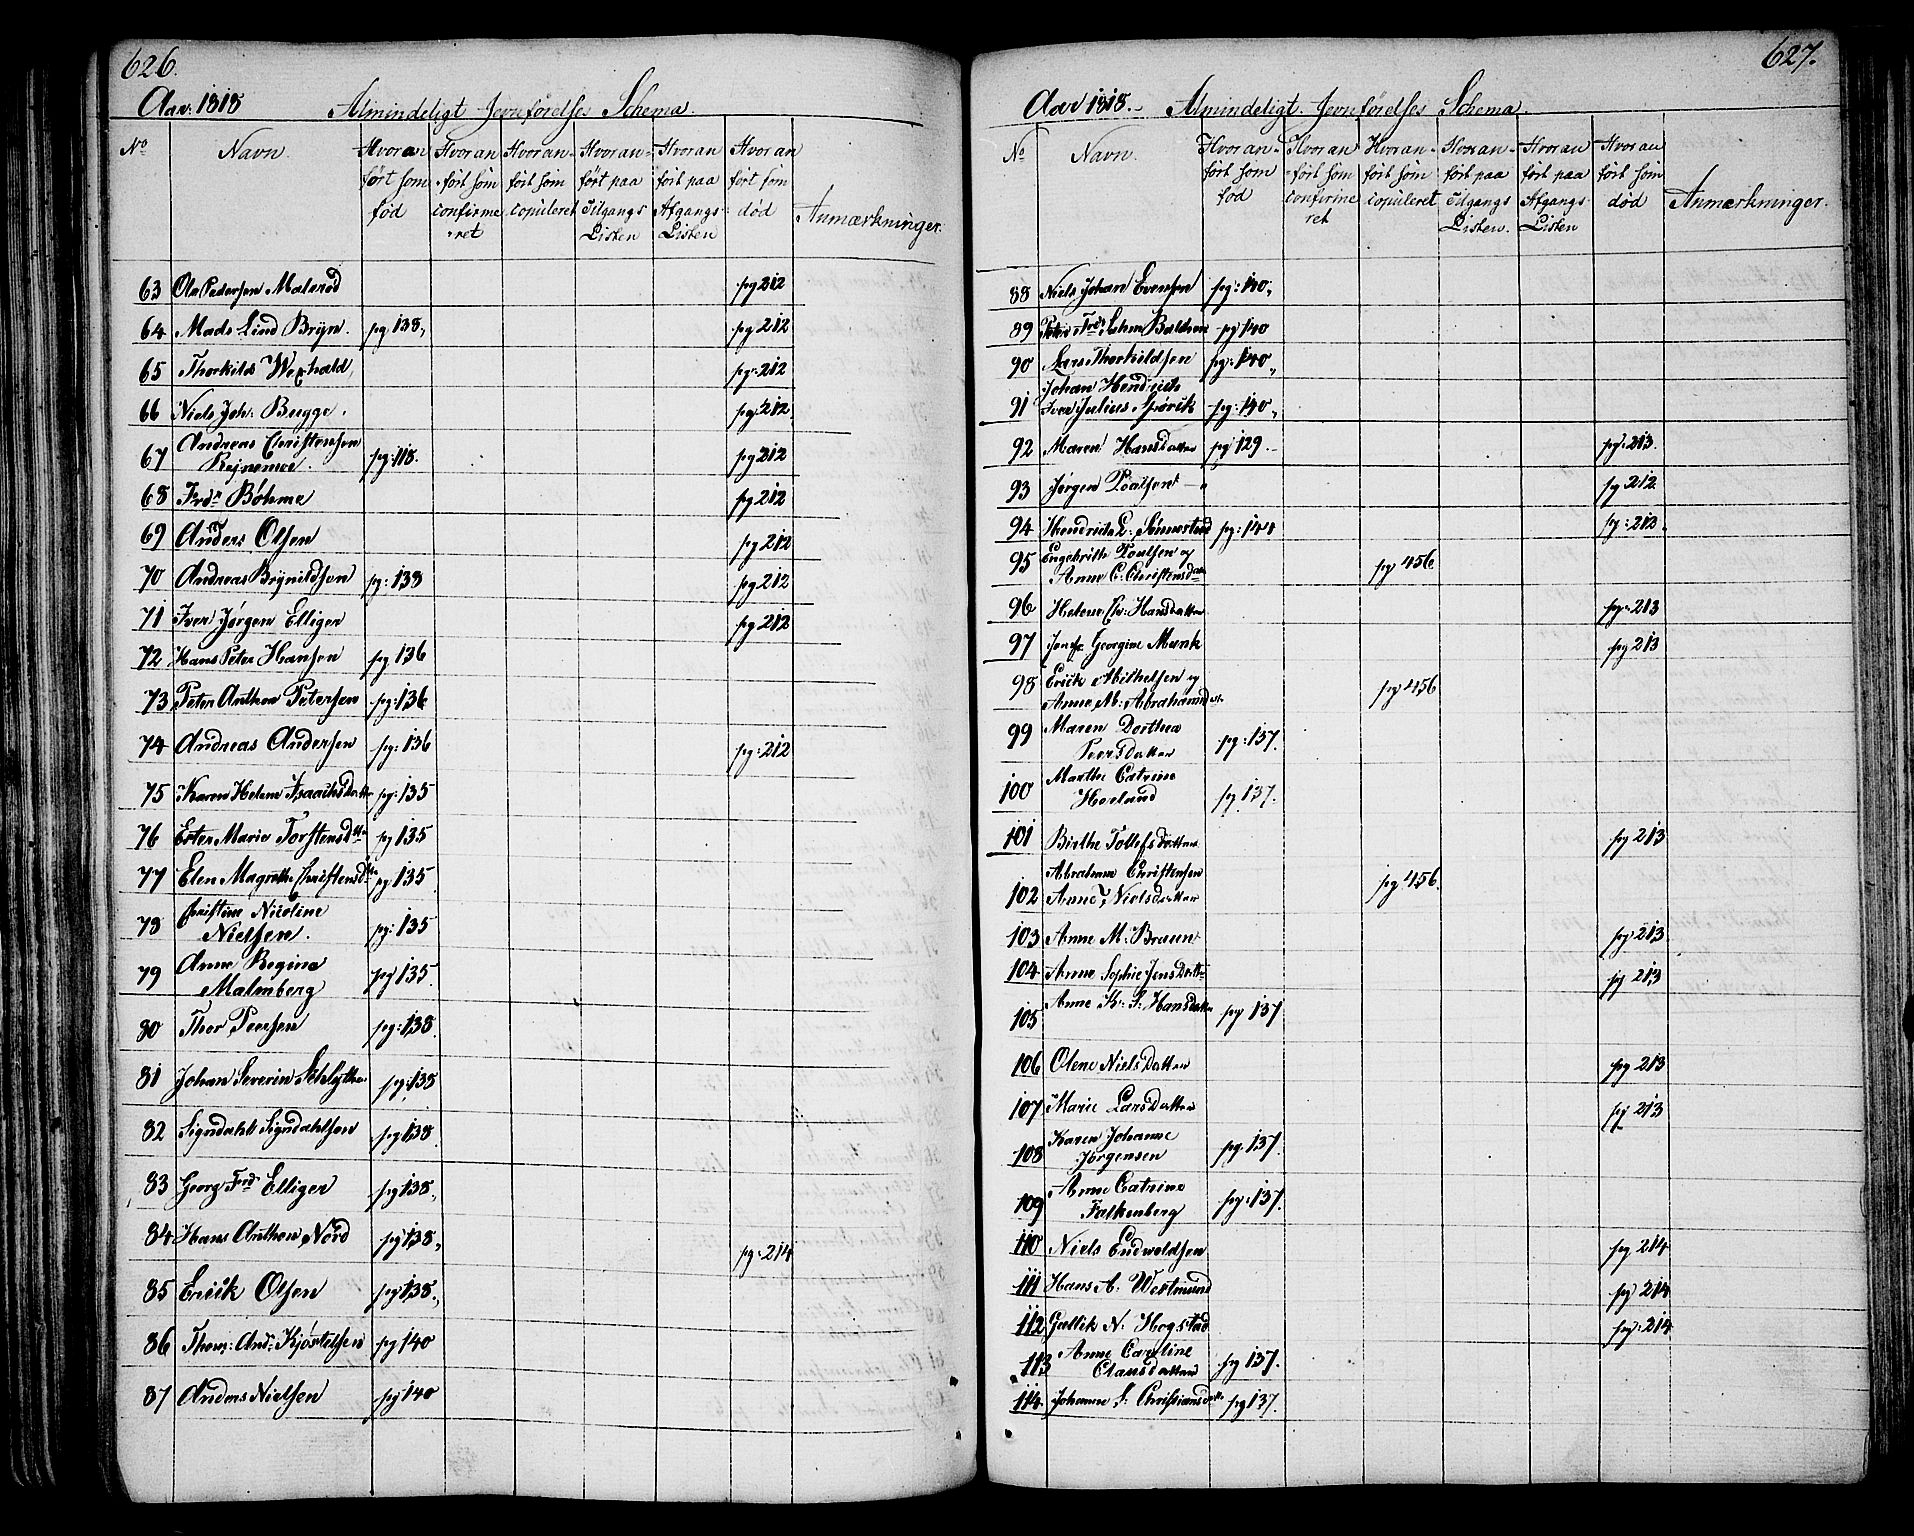 626.
Aar: 1818 Almindeligt Jevnførelses Schema.
No Navn. Hvor an ført som fød Hvor an ført som confirmeret Hvor an ført som copuleret Hvor an ført paa Tilgangs Listen Hvor an ført paa Afgangs Listen Hvor an ført som død Anmærkninger.
63 Ole Pedersen Malerød pg 212
64 Mads Lind Brijn. pg 138, pg 212
65 Thorkild Wexhald, pg: 212
66 Niels Joh: Bugge. pg: 212
67 Andreas Christensen
Rejnemoe. pg: 118. pg 212
68 Frdr Bøhme pg 212
69 Anders Olsen pg 212
70 Andreas Brynildsen pg: 138 pg 212
71 Iver Jørgen Elliger pg 212
72 Hans Peter Hansen pg 136
73 Peter Anthon Petersen pg: 136
74 Andreas Andersen pg: 136 pg: 212
75 Karen Helene Isaachsdatter pg: 135
76 Ester Marie Torstensdtr pg 135
77 Elen Magrethe Christensdtr pg 135
78 Christine Nicoline
Nielsen. pg: 135
79 Anne Regine
Malmberg pg 135
80 Thor Peersen pg: 138
81 Johan Severin Schlytter pg: 138
82 Sigvdahl Sigvdahlsen pg 138
83 Georg Frd Elliger pg 138,
84 Hans Anthon Nord pg 138, pg: 214
85 Erick Olsen pg 138,
86 Thom: And: Kjøstelsen pg 140
87 Anders Nielsen pg 140
627.
Aar 1818. Almindeligt Jevnførelses Schema.
No Navn. Hvor an ført som fød Hvor an ført som confirmeret Hvor an ført som copuleret Hvor an ført paa Tilgangs Listen. Hvor an ført paa Afgangs Listen Hvor an ført som død Anmærkninger.
88 Niels Johan Evensen pg: 140,
89 Peter Frdr Balchen pg 140
90 Lars Thorkildsen pg: 140,
Johan Hendrich
91 Iver Julius Spørck pg: 140,
92 Maren Hansdatter pg 129. pg: 213.
93 Jørgen Poulsen pg 212.
94 Hendrich L: Sønnestad pg: 141 pg: 213.
95 Engebrith Poulsen og
Anne C: Christensdatter pg 456
96 Helene Chr: Hansdatter pg: 213
97 Georgine Munk pg 213
98 Erick Michelsen og
Anne M: Abrahamsdatter pg 456
99 Maren Dorthea
Peersdatter pg: 137.
100 Marthe Catrine
Hovland pg 137.
101 Birthe Tollefsdatter pg 213
Abraham Christensen
102 Anne Nielsdatter pg 456.
103 Anne M: Braun pg 213
104 Anne Sophie Jensdatter pg 213
105 Anne K: S: Hansdatter pg 137
106 Olene Nielsdatter pg 213
107 Marie Larsdatter pg 213
108 Karen Johanne
Jørgensen pg. 137.
109 Anne Catrine
Falkenberg pg: 137.
110 Niels Endvoldsen pg 214
111 Hans A: Westmund pg 214
112 Gullik N: Hogstad pg: 214
113 Anne Caroline
Clausdatter pg 137.
114. Johanne S: Christiansdtr pg 137.